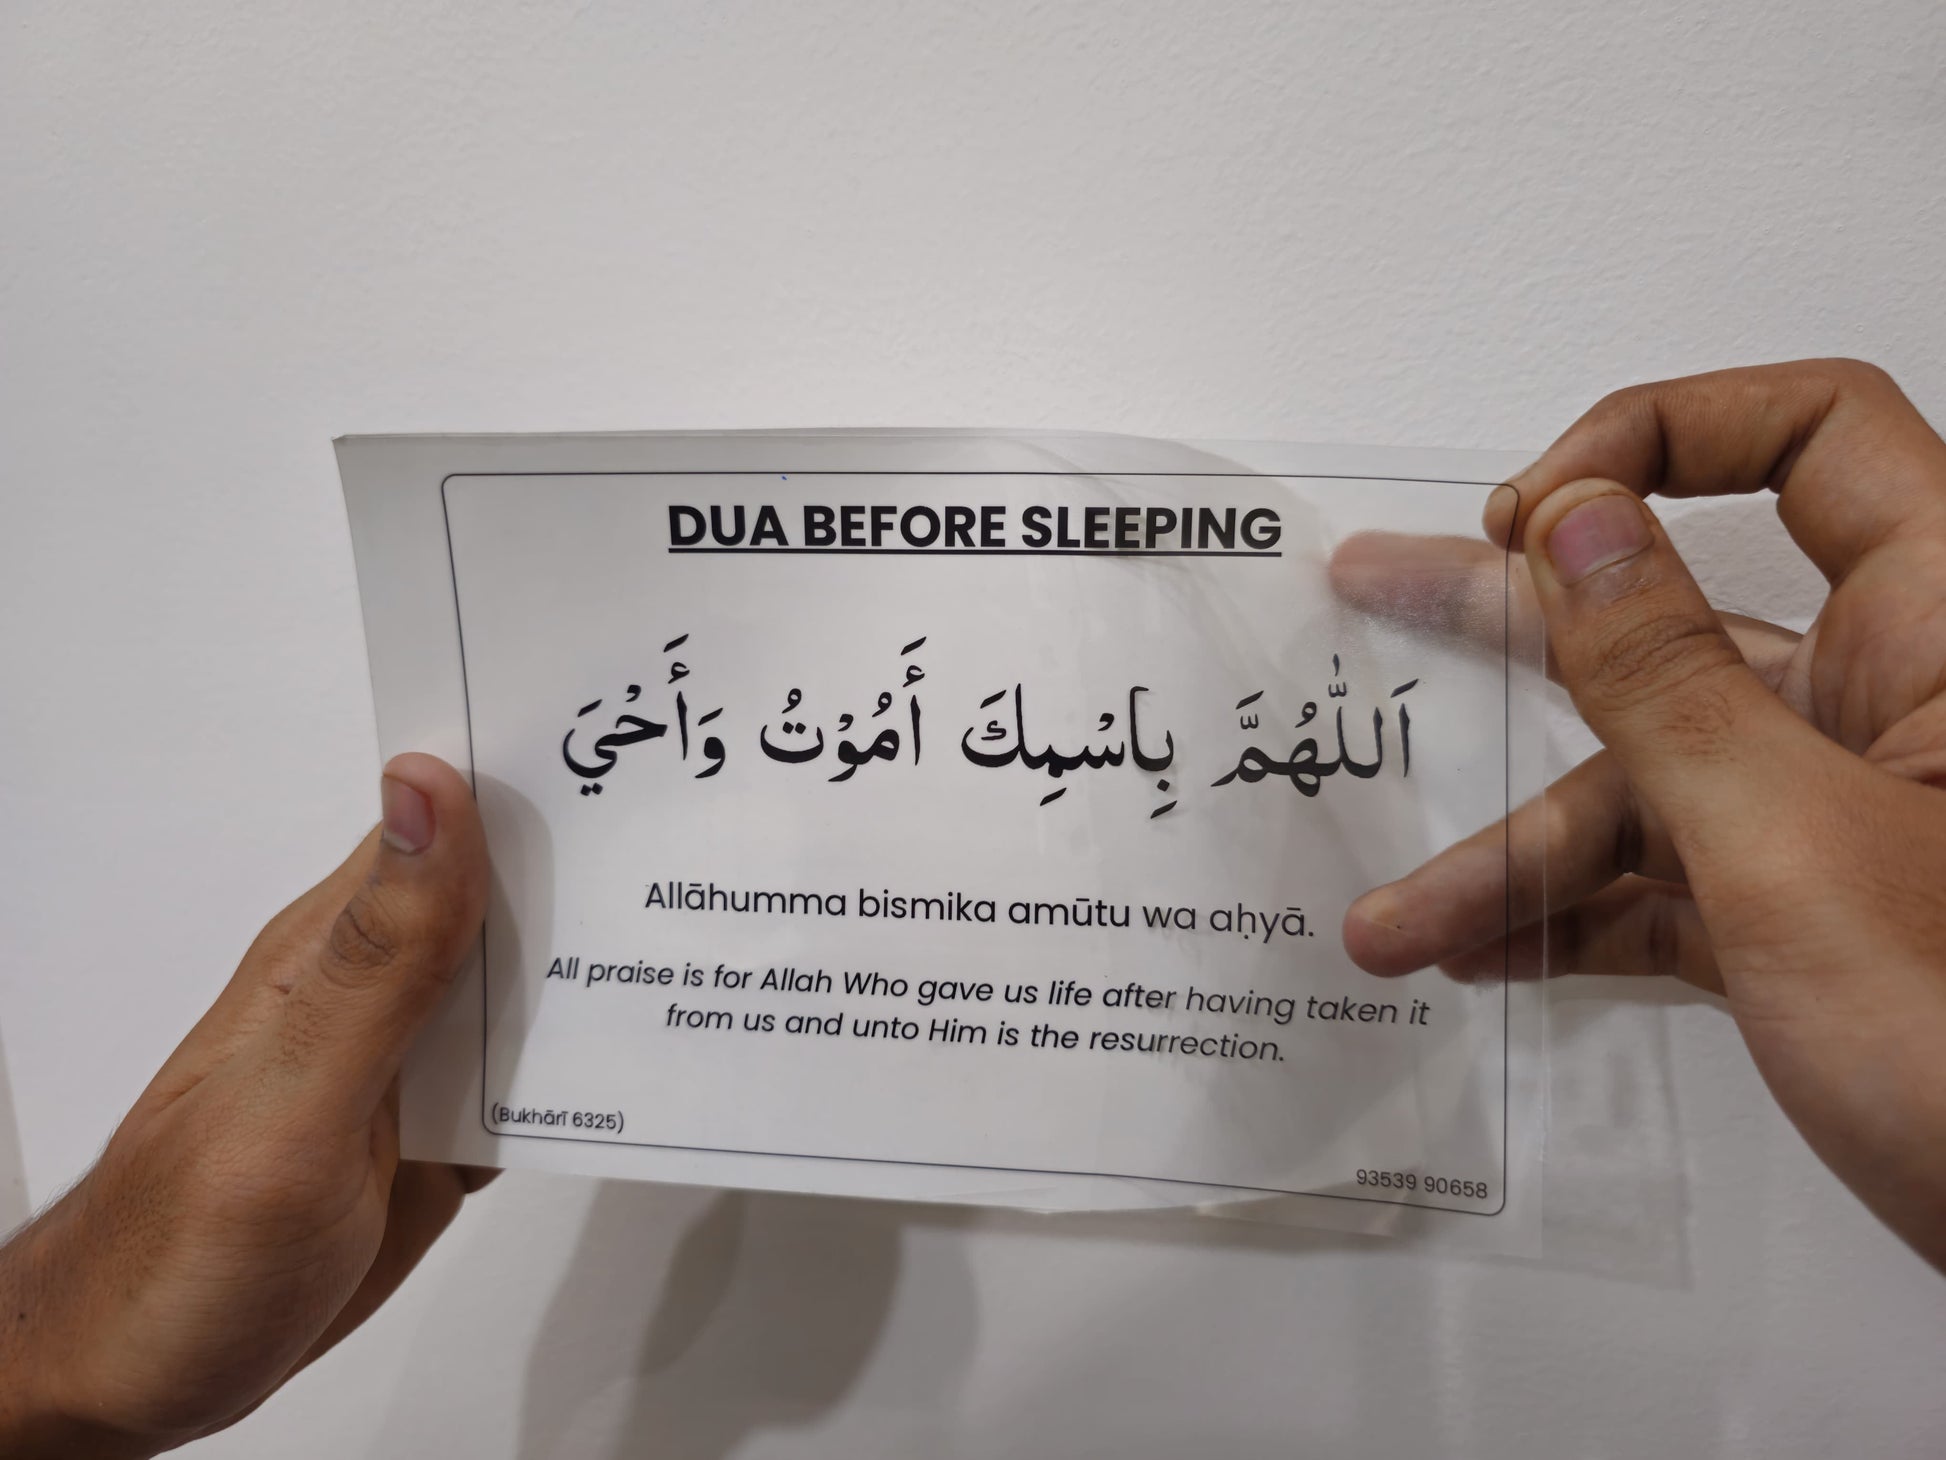 DUA BEFORE SLEEPING
اَللّٰهُمَّ بِاسْمِكَ أَمُوْتُ وَأَحْيَ
Allāhumma bismika amūtu wa aḥyā.
All praise is for Allah Who gave us life after having taken it
from us and unto Him is the resurrection.
(Bukhārī 6325)
93539 90658